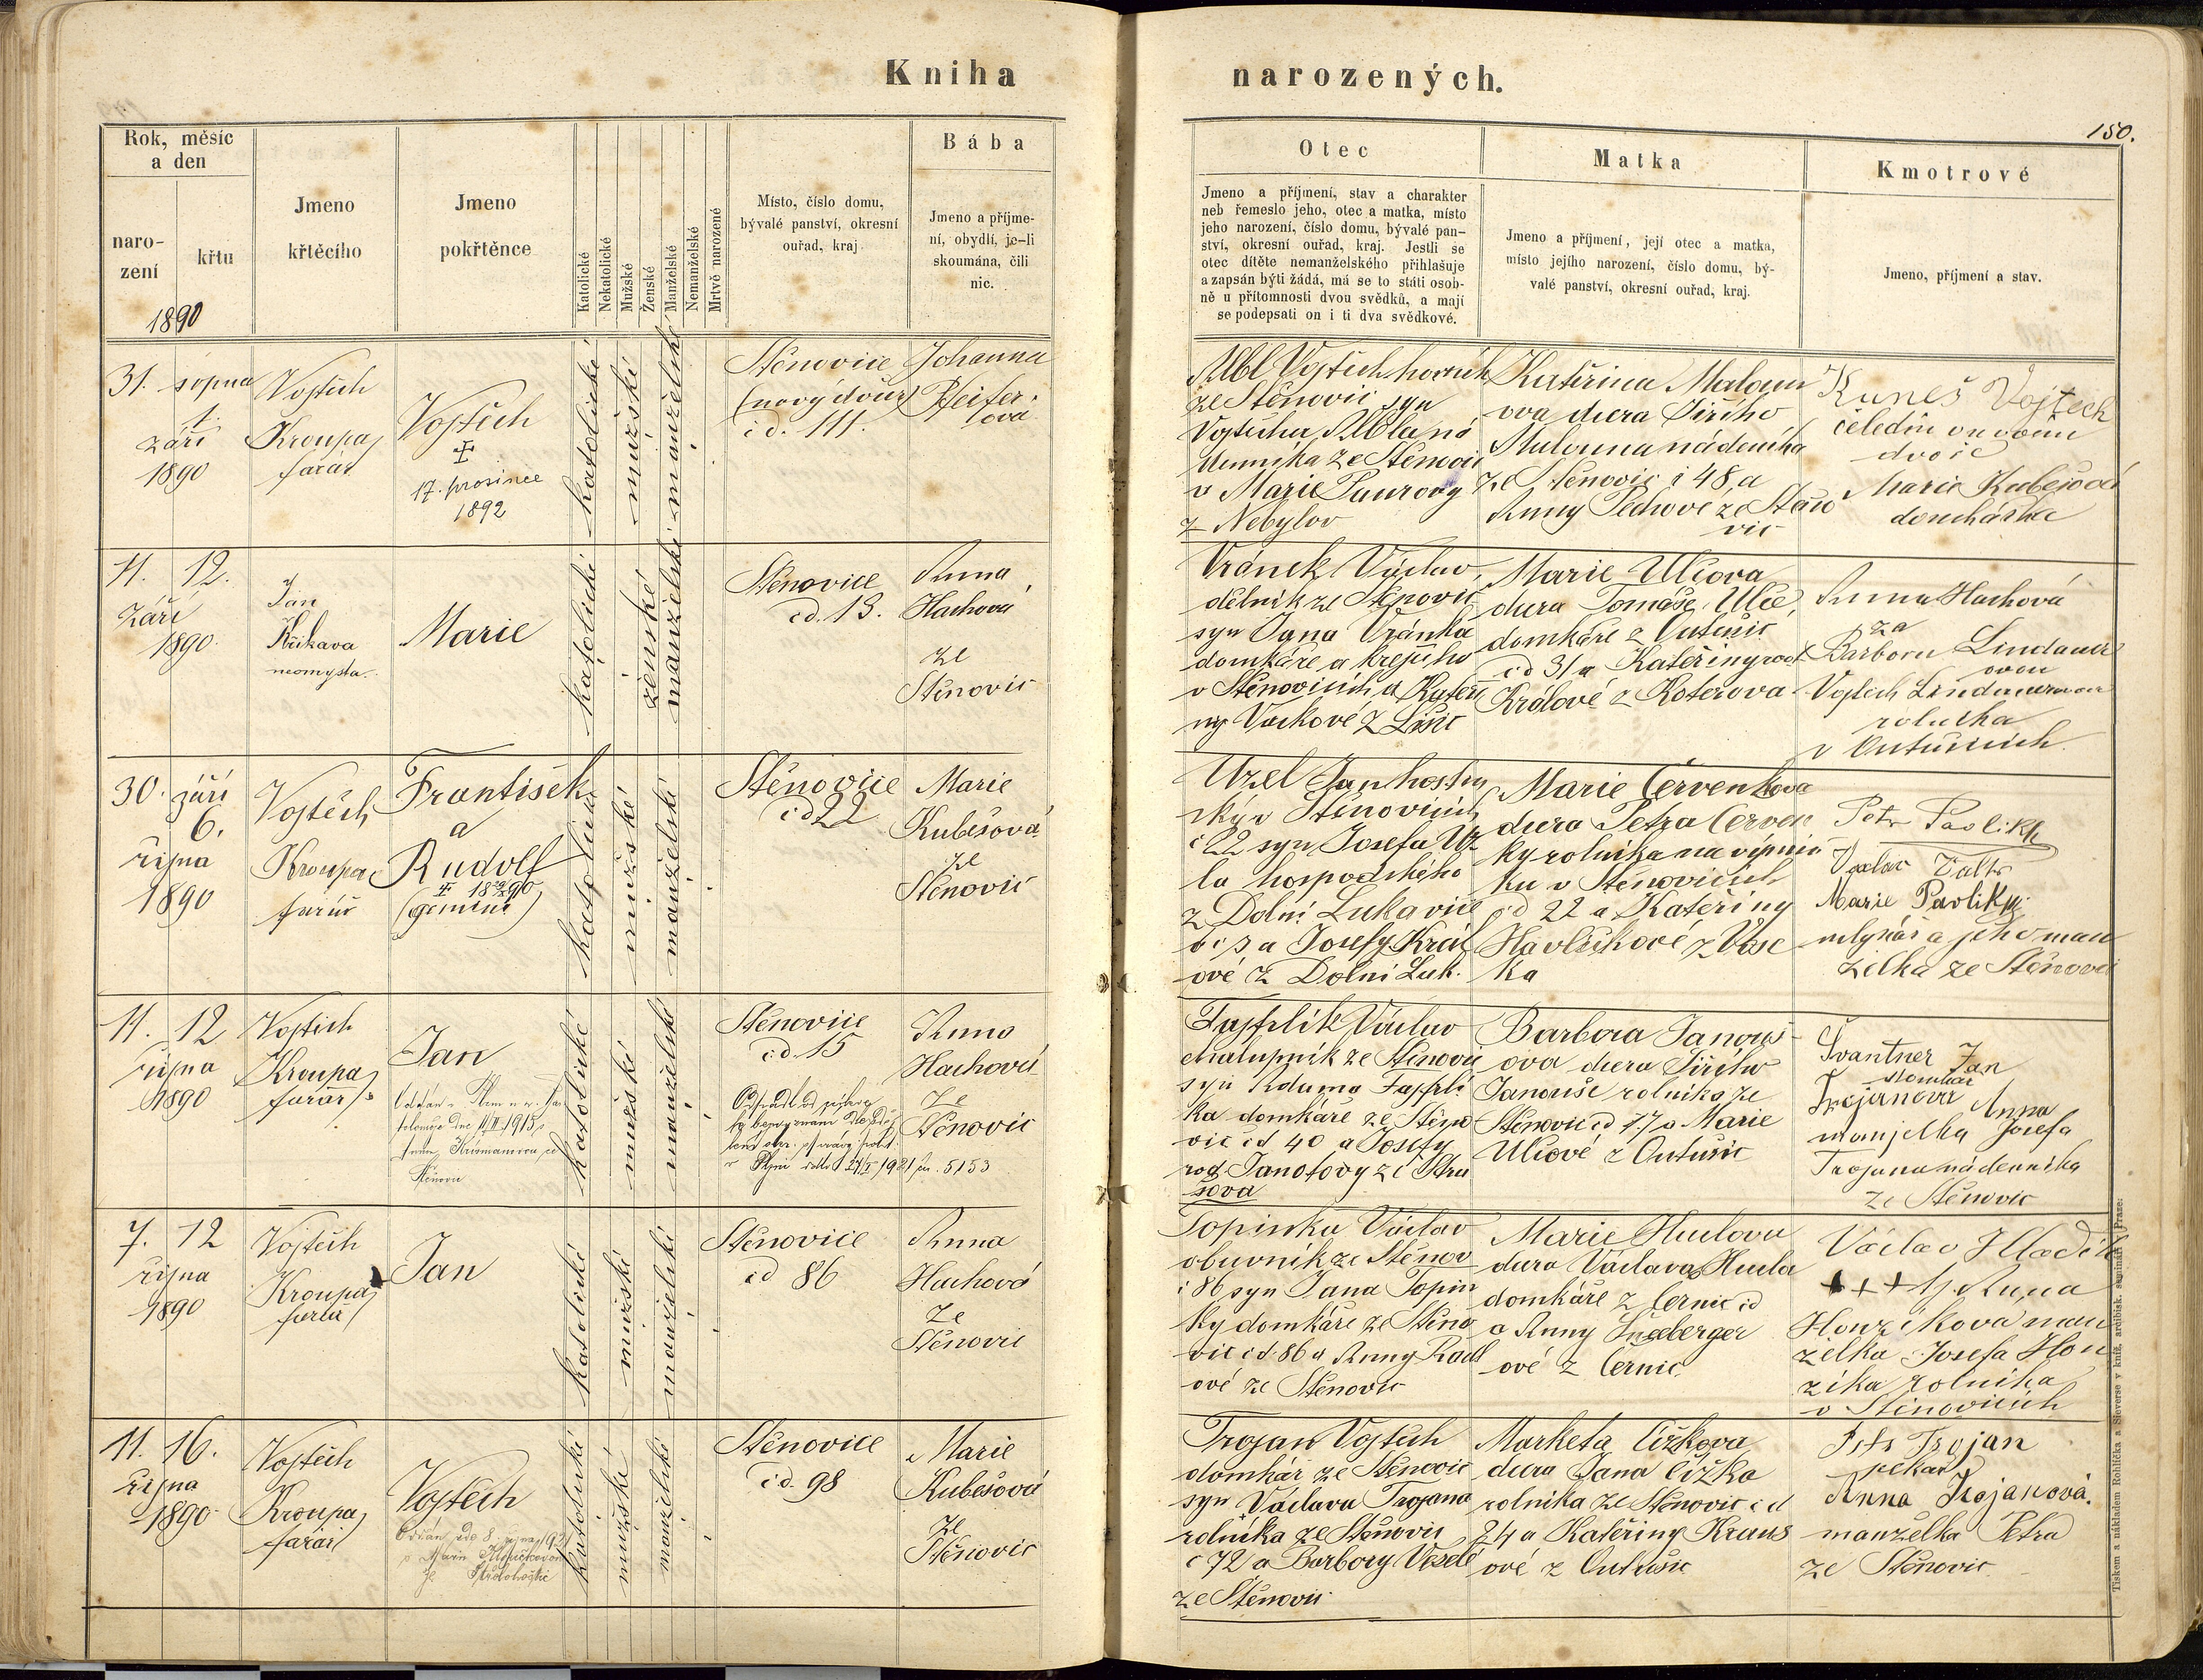 Kniha narozených.
150.
Rok, měsíc
a den
naro-
zení
křtu
1890
Jmeno
křtěcího
Jmeno
pokřtěnce
Katolické
Nekatolické
Mužské
Ženské
Manželské
Nemanželské
Mrtvě narozené
Místo, číslo domu,
bývalé panství, okresní
ouřad, kraj
Bába
Jmeno a příjme-
ní, obydlí, je-li
skoumána, čili
nic.
Otec
Jmeno a příjmení, stav a charakter
neb řemeslo jeho, otec a matka, místo
jeho narození, číslo domu, bývalé pan-
ství, okresní ouřad, kraj. Jestli se
otec dítěte nemanželského přihlašuje
a zapsán býti žádá, má se to státi osob-
ně u přítomnosti dvou svědků, a mají
se podepsati on i ti dva svědkové.
Matka
Jmeno a příjmení, její otec a matka,
místo jejího narození, číslo domu, bý-
valé panství, okresní ouřad, kraj.
Kmotrové
Jmeno, příjmení a stav.
31. srpna
1.
září
1890
Vojtěch
Kroupa
farář
Vojtěch
17. prosince
1892
katolické
mužské
manželské
Stěnovice
(nový dvůr)
čd. 111.
Johanna
Pfeifer-
ova
Vojtěch horník
ze Stěnovic syn
Vojtěcha
ze Stěnovic
v Marie
z Nebylov
Kateřina Maloun
ova dcera Jiřího
Malouna nádeníka
ze Stěnovic č 48 a
Anny Pechové ze Stěno
vic
Kuneš Vojtěch
čeledín v novém
dvoře
Marie Kubešová
domkářka
11. 12.
září
1890.
Jan
Křikava
neomysta.
Marie
katolické
ženské
manželské
Stěnovice
čd. 13.
Anna
Hachová
ze
Stěnovic
Vránek Václav,
dělník ze Stěnovic
syn Jana Vránka
domkáře a krejčího
v Stěnovicích a Kateři
ny Vackové z Lišic
Marie Ulčova
dcera Tomáše Ulče,
domkáře z Čutušic
čd 31 a Kateřiny rod.
Králové z Koterova
Anna Hachová
za
Barboru Lindauer
ovou
Vojtěch
rolníka
v Čutušicích.
30. září
6.
října
1890
Vojtěch
Kroupa
farář
František
a
Rudolf
(gemini)
katolické
mužské
manželské
Stěnovice
čd 22
Marie
Kubešová
ze
Stěnovic
Uzel Jan hostin
ský v Stěnovicích
č 22 syn Josefa Uz
la hospodského
z Dolní Lukavice
a Josefy Král
ové z Dolní Luk.
Marie Červenkova
dcera Petra Červen
ky rolníka na výmin
ku v Stěnovicích
čd 22 a Kateřiny
Havlíčkové z Vose
ka
Petr Pavlík
Marie Pavlík
mlynář a jeho man
želka ze Stěnovic
11. 12
října
1890
Vojtěch
Kroupa
farář
Jan
katolické
mužské
manželské
Stěnovice
čd. 15
5153
Anna
Hachová
ze
Stěnovic
Tajfrlík Václav
chalupník ze Stěnovic
syn Adama Tajfrlí
ka domkáře ze Stěno
vic čd 40 a Josefy
rod. Janotovy ze Štru
šova
Barbora Janouš-
ova dcera Jiřího
Janouše rolníka ze
Stěnovic čd 17 a Marie
Ulčové z Čutušic
Švantner Jan
domkář
Trojanova Anna
manželka Josefa
Trojana nádenníka
ze Stěnovic
7. 12
října
1890
Vojtěch
Kroupa
farář
Jan
katolické
mužské
manželské
Stěnovice
čd 86
Anna
Hachová
ze
Stěnovic
Topinka Václav
obuvník ze Stěnov
č 86 syn Jana Topin
ky domkáře ze Stěno
vic čd 86 a Anny Radl
ové ze Stěnovic
Marie Huclova
dcera Václava Hucla
domkáře z Černic čd
a Anny
ové z Černic.
Václav Hladík
+++ Anna
Honzíková man
želka Josefa Hon
zíka rolníka
v Stěnovicích
11. 16.
října
1890
Vojtěch
Kroupa
farář
Vojtěch
katolické
mužské
manželské
Stěnovice
čd. 98
Marie
Kubešová
ze
Stěnovic
Trojan Vojtěch
domkář ze Stěnovic
syn Václava Trojana
rolníka ze Stěnovic
č 72 a Barbory Veselé
ze Stěnovic
Marketa Čížkova
dcera Jana Čížka
rolníka ze Stěnovic čd
24 a Kateřiny Kraus
ové z Čutušic
Petr Trojan
pekař
Anna Trojanová.
manželka Petra
ze Stěnovic